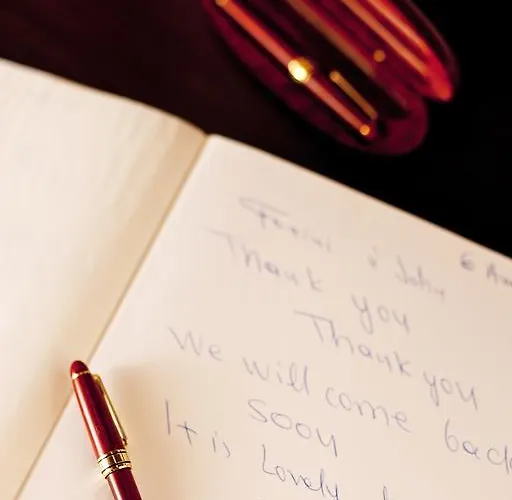 & John 6
Thank you
Thank you
We will come back
soon
It is Lovely